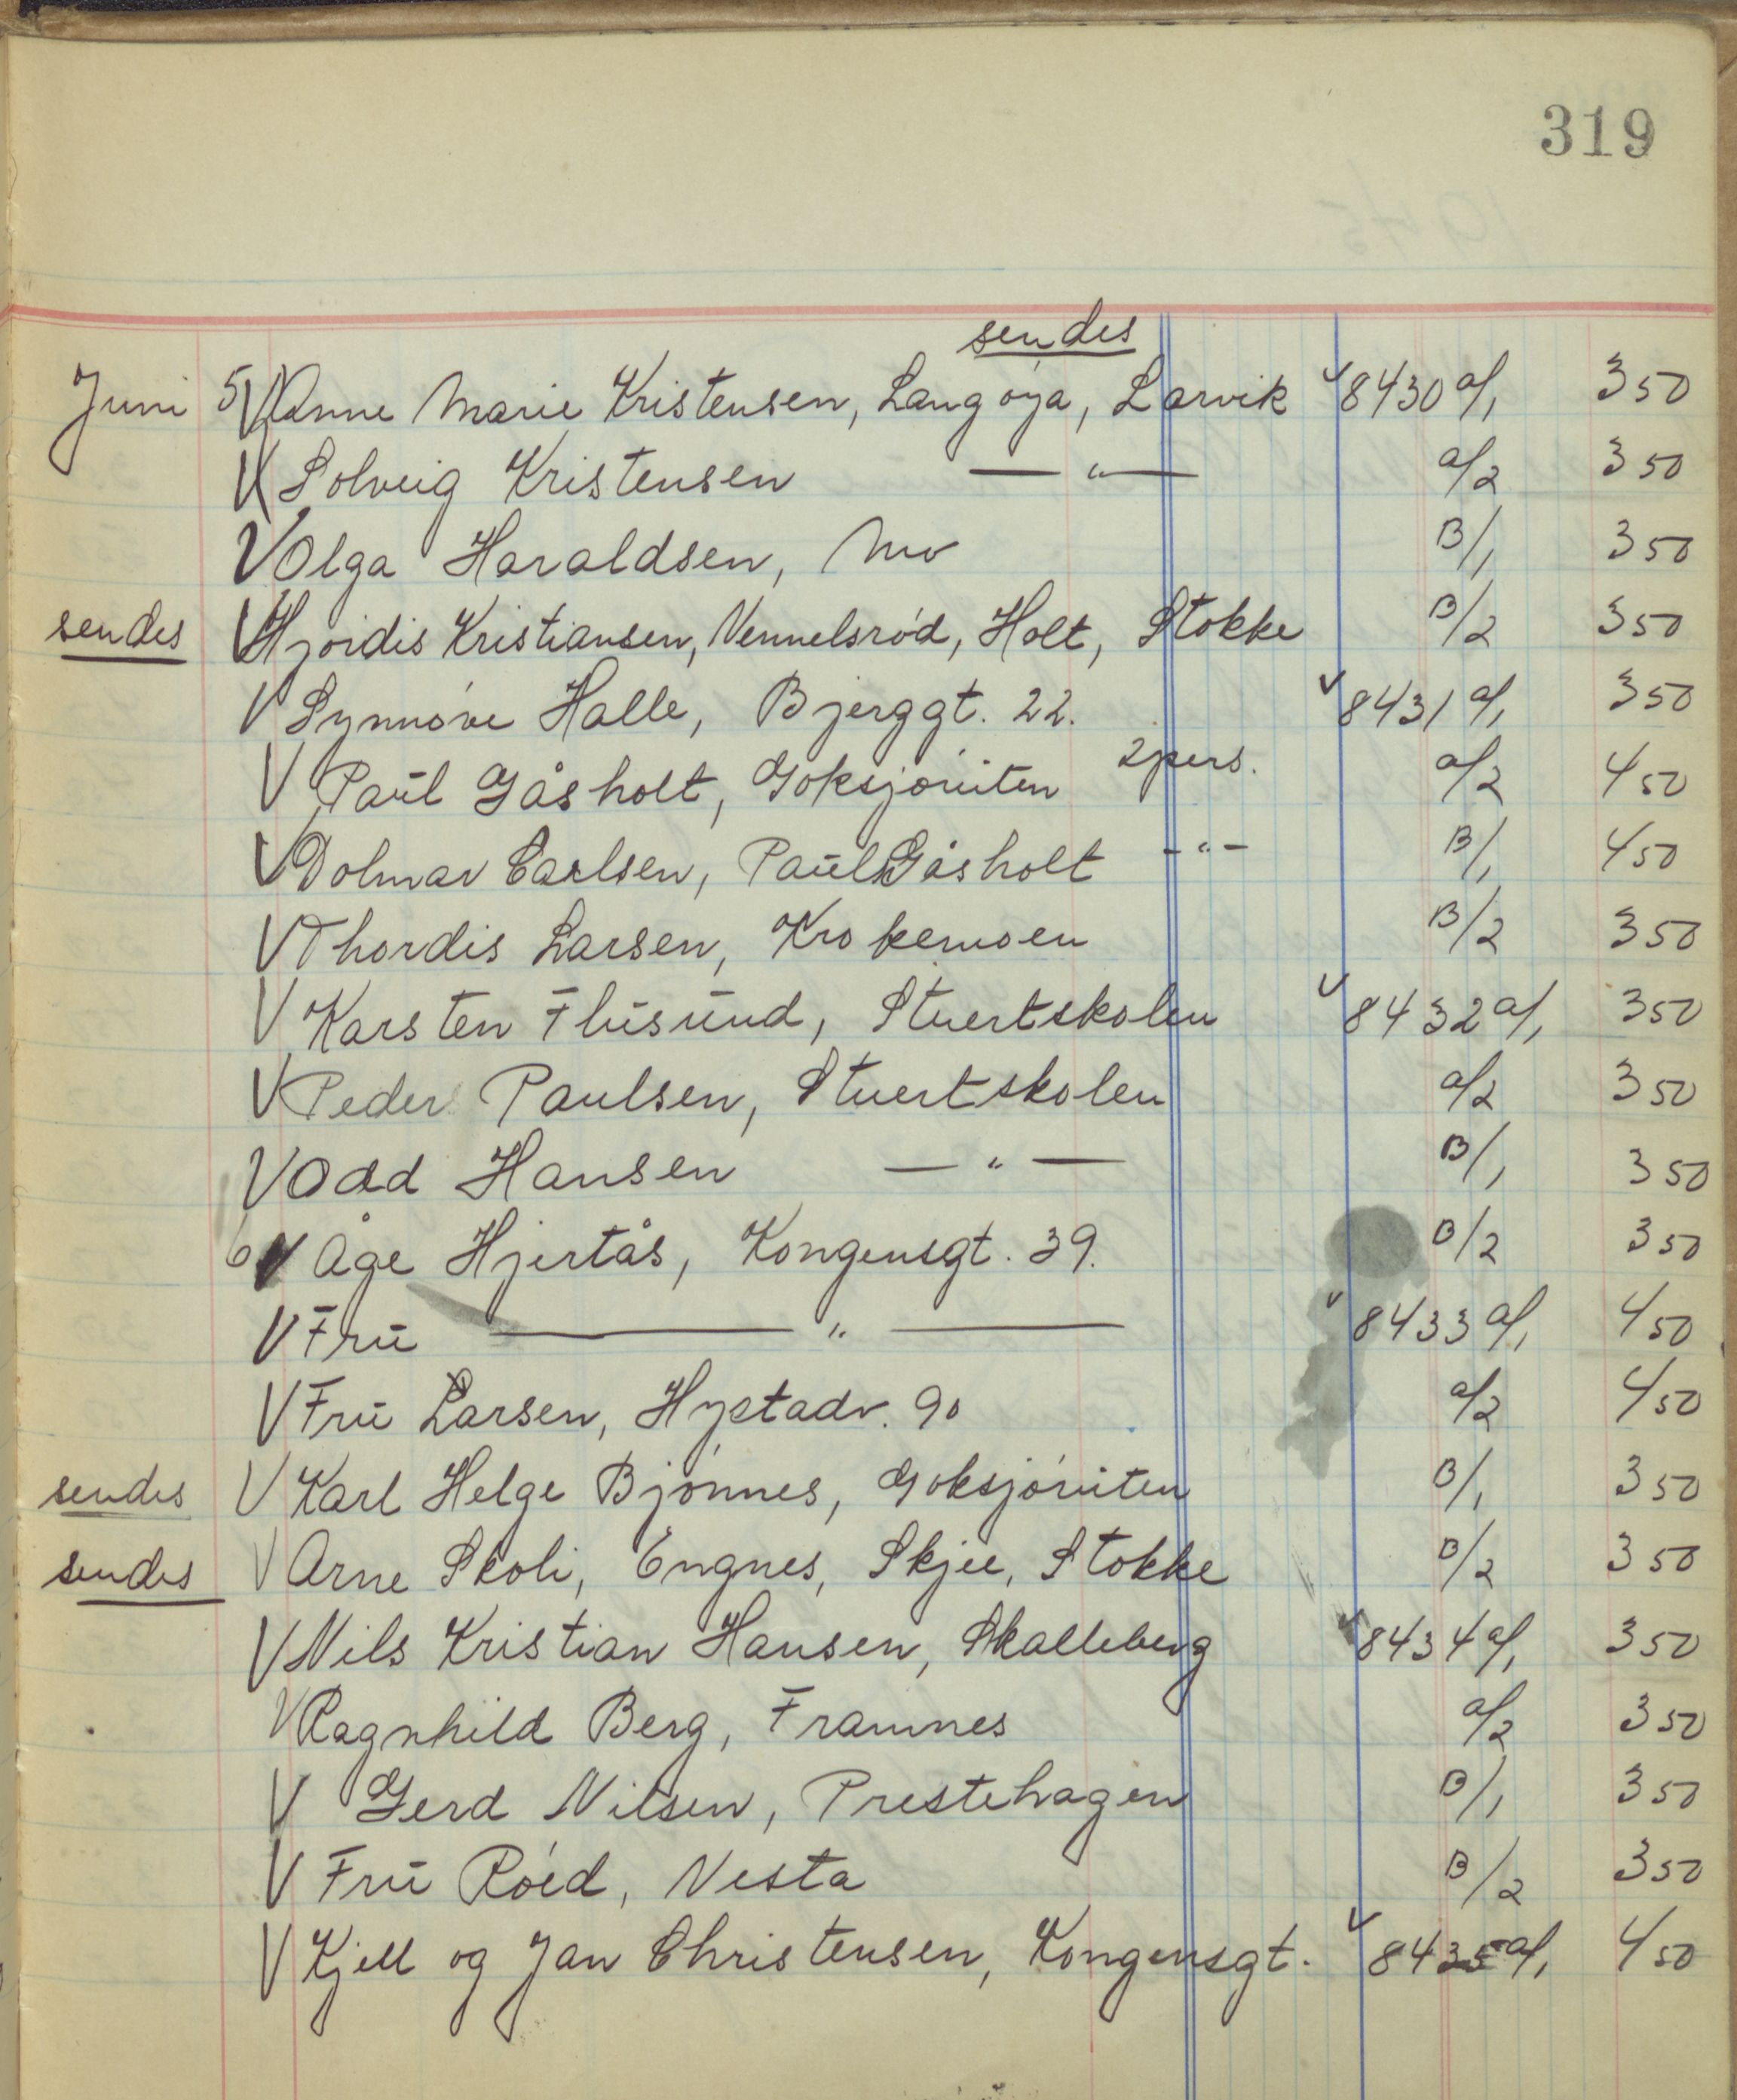 319
sendes
Juni 5 V Anne Marie Kristensen, Langøya, Larvik ✓ 8430 a/1 3 50
V Solveig Kristensen — " — a/2 3 50
V Olga Haraldsen, Mo B/1 3 50
sendes V Hjördis Kristiansen, Vennelsrød, Holt, Stokke B/2 3 50
V Synnøve Halle, Bjerggt. 22. ✓ 8431 a/1 3 50
V Paul Gåsholt, Goksjøruten 2 pers. a/2 4 50
V Dolmar Carlsen, Paul Gåsholt - " - B/1 4 50
V Thordis Larsen, Krokemoen B/2 3 50
V Karsten Flusund, Stuertskolen ✓ 8432 a/1 3 50
V Peder Paulsen, Stuertskolen a/2 3 50
V Odd Hansen — " — B/1 3 50
6 V Åge Hjertås, Kongensgt. 39. B/2 3 50
V Fru — " — ✓ 8433 a/1 4 50
V Fru Larsen, Hystadv. 90 a/2 4 50
sendes V Karl Helge Bjønnes, Goksjøruten B/1 3 50
sendes V Arne Skoli, Engnes, Skjee, Stokke B/2 3 50
V Nils Kristian Hansen, Skalleberg ✓ 8434 a/1 3 50
V Ragnhild Berg, Framnes a/2 3 50
V Gerd Nilsen, Prestehagen B/1 3 50
V Fru Røed, Nesta B/2 3 50
V Kjell og Jan Christensen, Kongensgt. ✓ 8435 a/1 4 50